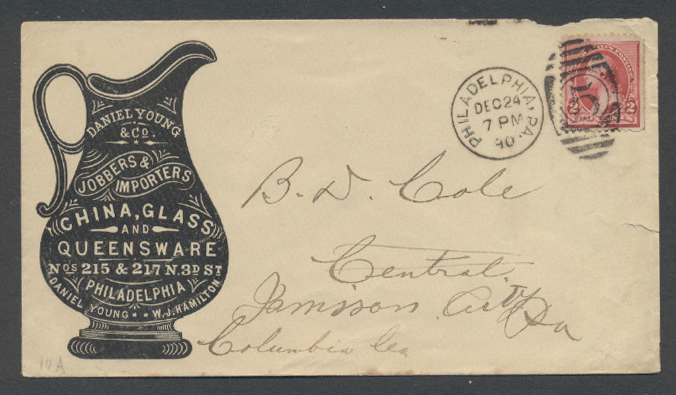 DANIEL YOUNG
& CO.
JOBBERS &
IMPORTERS
CHINA, GLASS
AND
QUEENSWARE
NOS 215 & 217 N. 3D ST
PHILADELPHIA
DANIEL YOUNG W. J. HAMILTON
PHILADELPHIA, PA.
DEC 24
7 PM
90
2 2
B. D. Cole
Central
Jamisson City Pa
Columbia Co
10 A